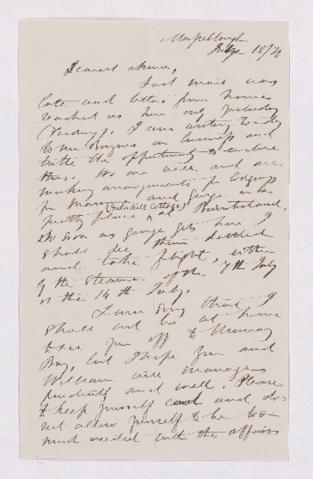 June 18/76
Dearest Annie,
Last mail was
late and letters from home
reached us here only yesterday
(Sunday). I am writing today
to on business and
take the opportunity to enclose
this. We are well and are
making arrangements for lodgings
for Mamma and George in a
pretty place (Oak hill Cottage) at
So soon as George gets here I
shall see them settled
and take flight, either
by the Steamer of the 7th July
or the 14th July.
I am sorry that I
shall not be at home
to see you off to Murray
Bay, but I hope you and
William will manage
prudently and well. Please
to keep yourself cool and do
not allow yourself to be too
much worried with the affairs